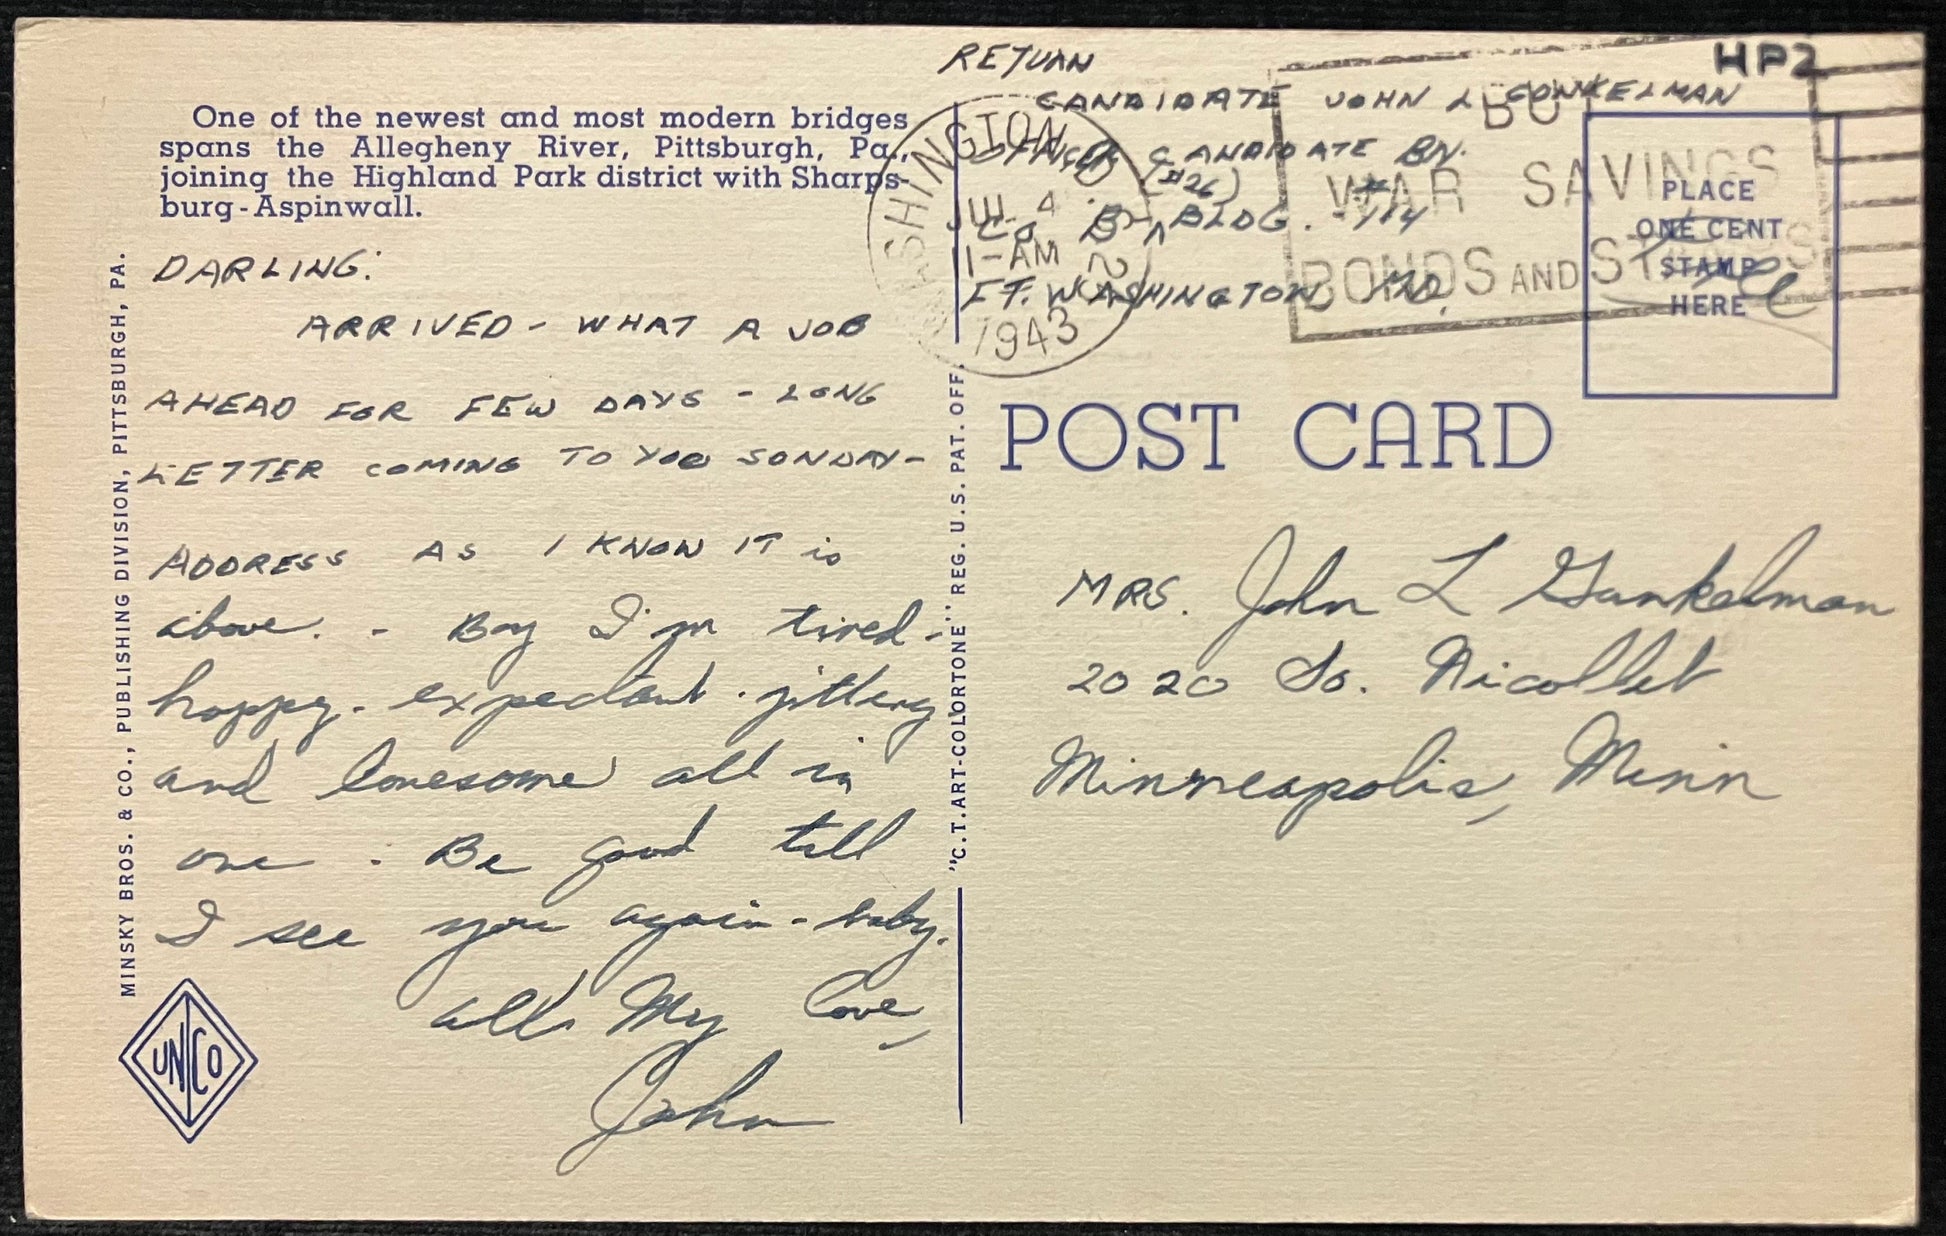 One of the newest and most modern bridges
spans the Allegheny River, Pittsburgh, Pa.,
joining the Highland Park district with Sharps-
burg-Aspinwall.
DARLING:
ARRIVED - WHAT A JOB
AHEAD FOR FEW DAYS - LONG
LETTER COMING TO YOU SUNDAY-
ADDRESS AS I KNOW IT is
above. - Boy I'm tired -
happy - expectant - jittery
and lonesome all in
one - Be good till
I see you again - baby.
all My love,
John
MINSKY BROS. & CO., PUBLISHING DIVISION, PITTSBURGH, PA.
UNCO
"C.T.ART-COLORTONE" REG. U.S. PAT. OFF.
RETURN
CANDIDATE JOHN L GUNKELMAN
OFFICER CANDIDATE BN.
(#26)
Co B - BLDG. #114
FT. WASHINGTON MD.
HP2
WASHINGTON D
JUL 4
1-AM
1943
BUY
WAR SAVINGS
BONDS AND STAMPS
PLACE
ONE CENT
STAMP
HERE
Free
POST CARD
MRS. John L Gunkelman
2020 So. Nicollet
Minneapolis, Minn